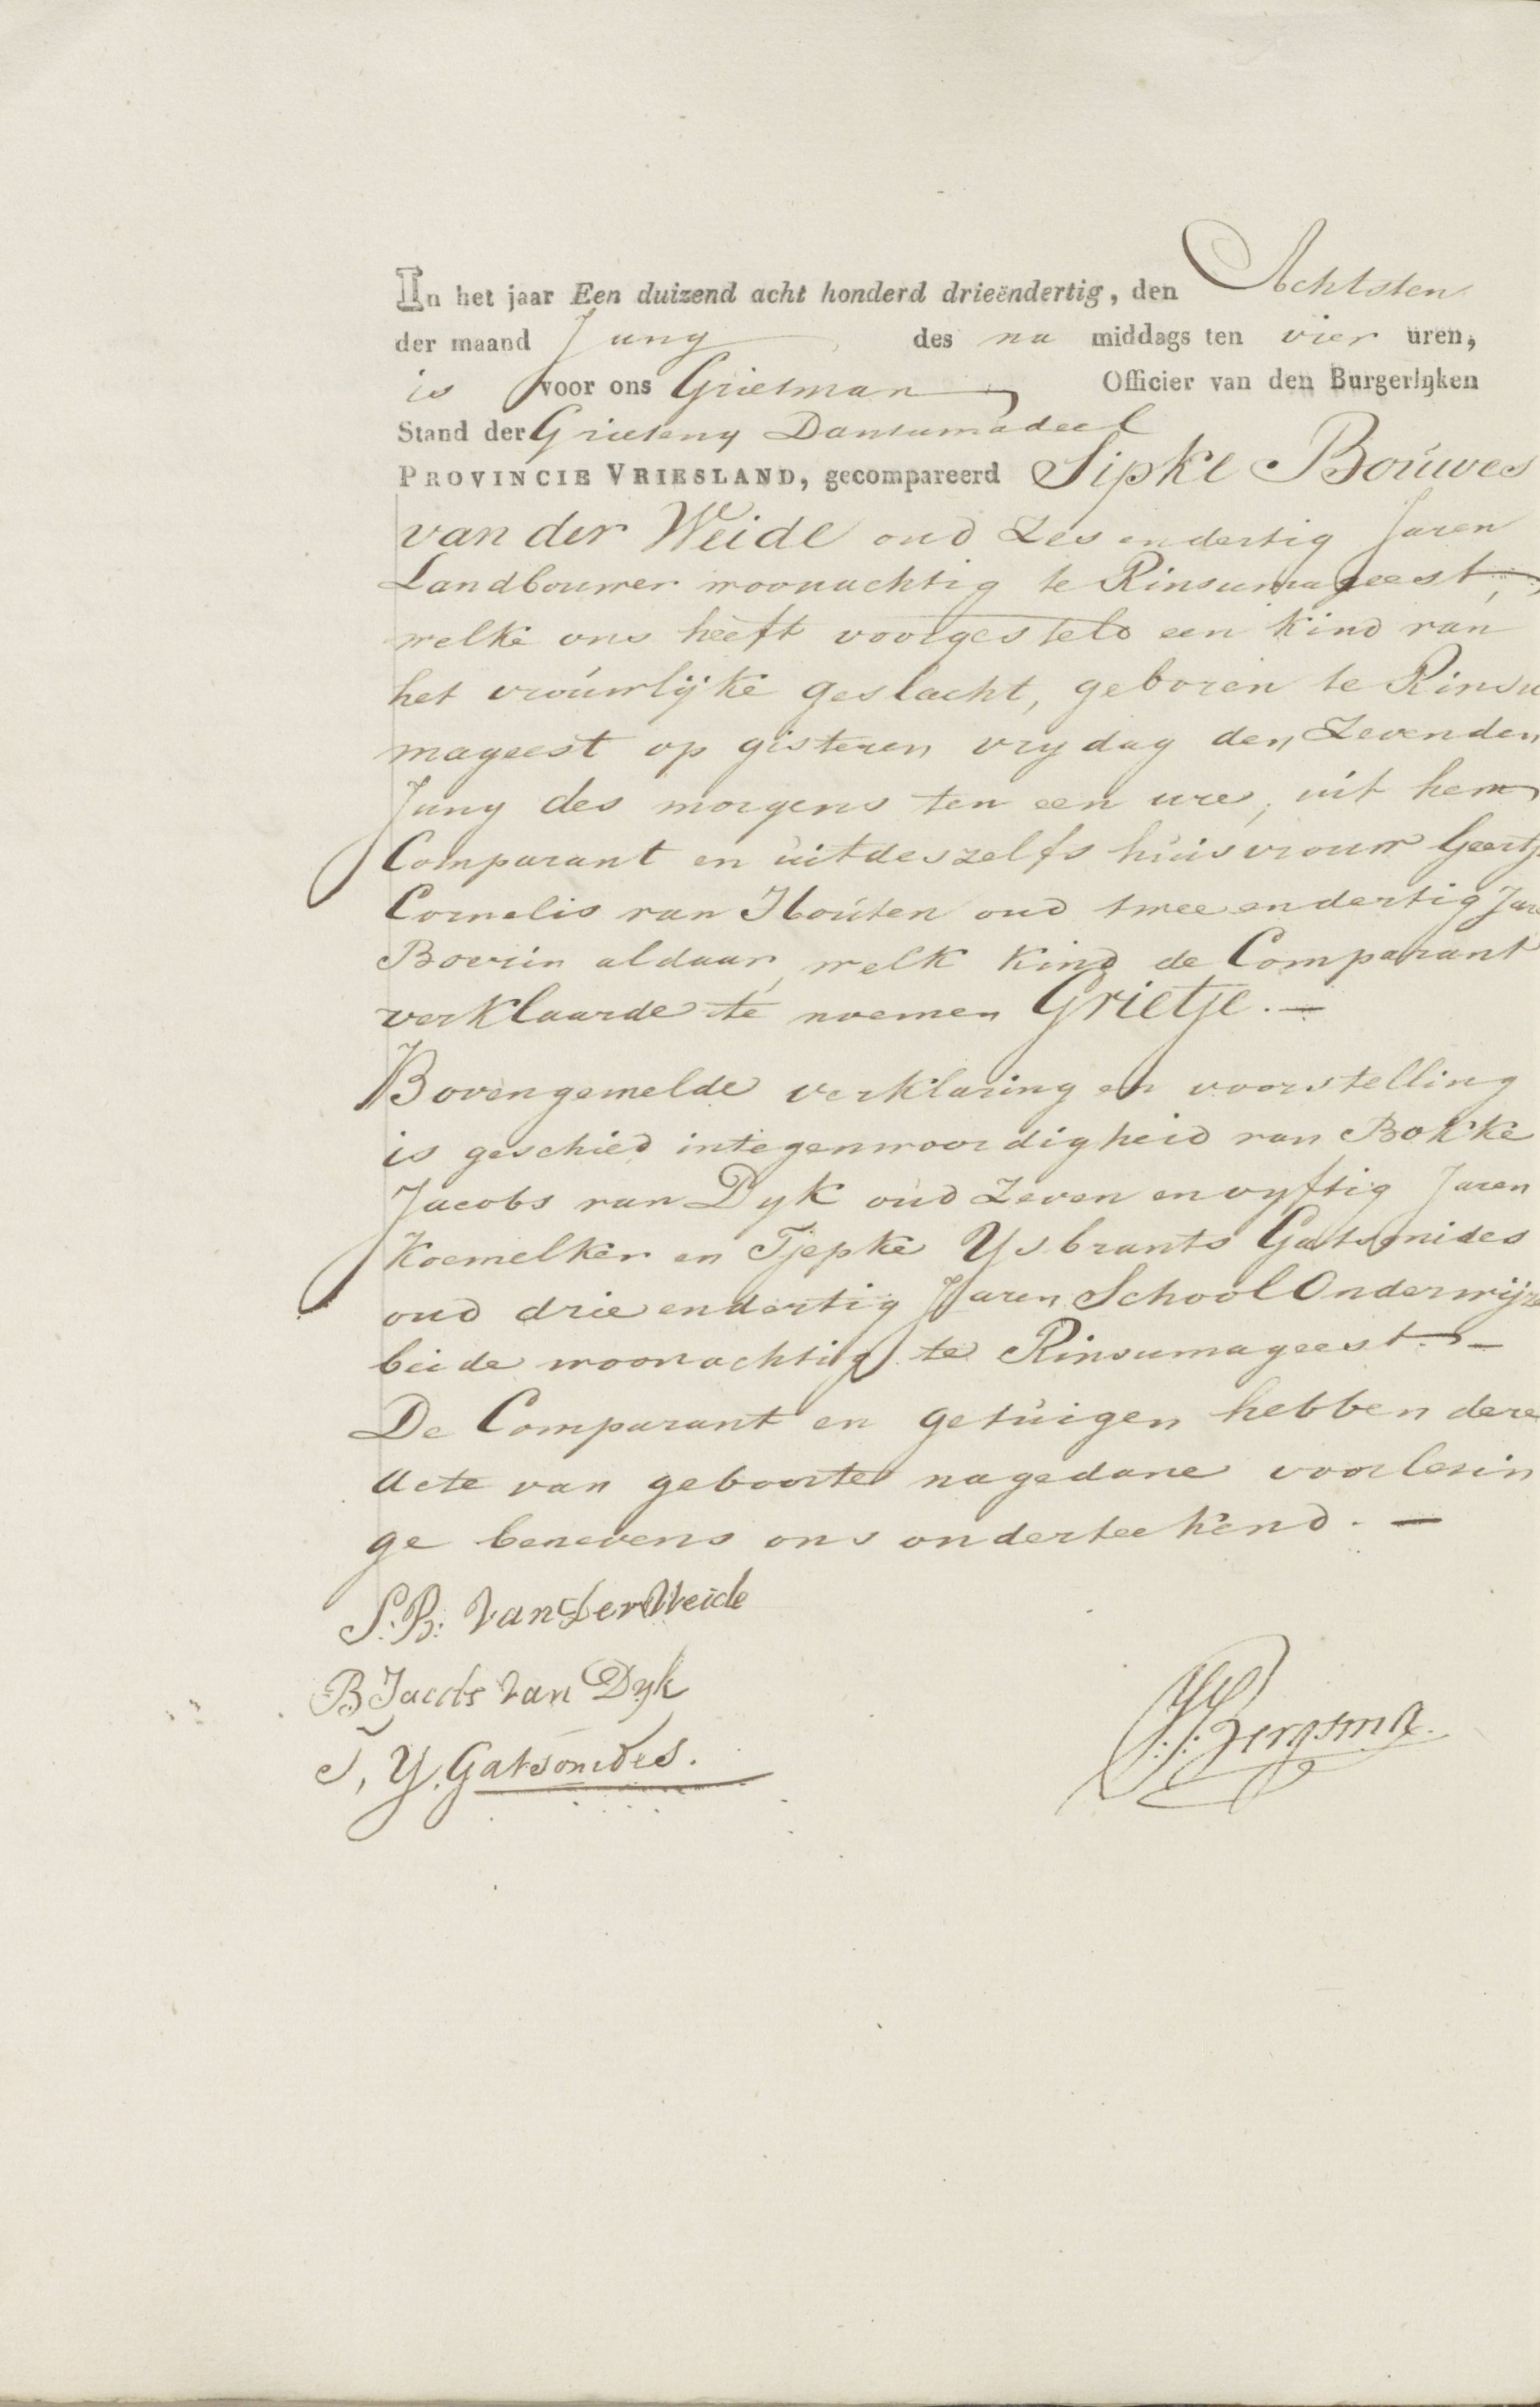 In het jaar Een duizend acht honderd drieëndertig, den Achtsten
der maand Juny des na middags ten vier uren,
is voor ons Grietman Officier van den Burgerlyken
Stand der Grieteny Dantumadeel
PROVINCIE VRIESLAND, gecompareerd Sipke Bouwes
van der Weide oud Zes en dertig Jaren
Landbouwer woonachtig te Rinsumageest,
welke ons heeft voorgesteld een kind van
het vrouwlijke geslacht, geboren te Rinsu
mageest op gisteren vrydag den Zevenden
Juny des morgens ten een ure, uit hem
Comparant en uit deszelfs huisvrouw Geertje
Cornelis van Houten oud twee en dertig Jare
Boerin aldaar, welk kind de Comparant
verklaarde te noemen Grietje. —
Bovengemelde verklaring en voorstelling
is geschied in tegenwoordigheid van Bokke
Jacobs van Dyk oud Zeven en vyftig Jaren
Koemelker en Tjepke Ysbrants Gatsonides
oud drie en dertig Jaren School Onderwijze
beide woonachtig te Rinsumageest. —
De Comparant en getuigen hebben deze
Acte van geboorte na gedane voorlezin
ge benevens ons onderteekend. —
S. B. van der Weide
B Jacobs van Dyk
T. Y. Gatsonides.